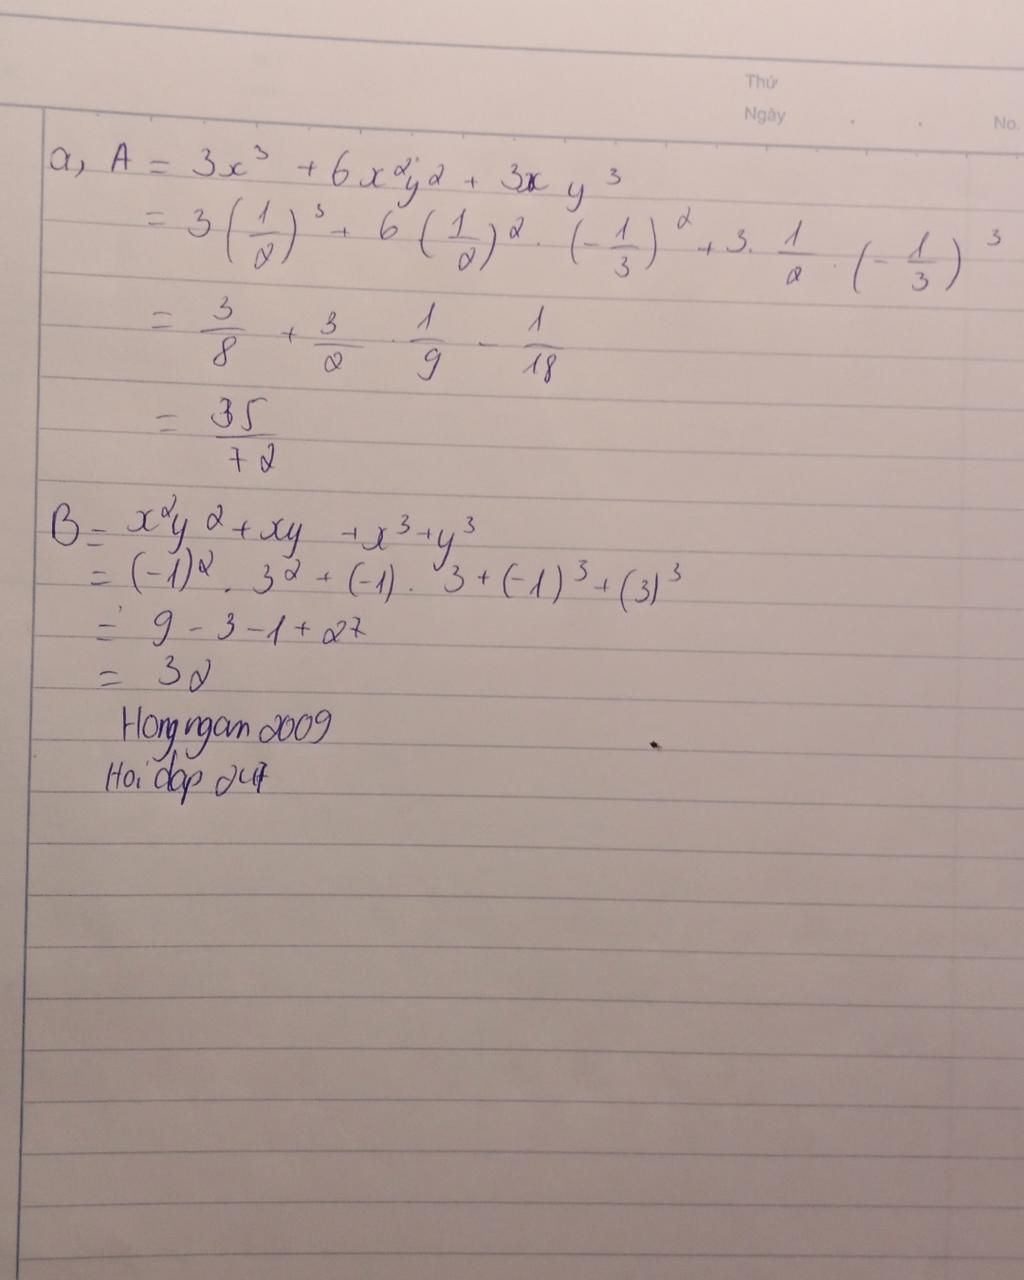 Thứ
Ngày . . No.
a, A = 3x³ + 6x²y² + 3xy³
= 3(1/2)³ + 6(1/2)² . (-1/3)² + 3. 1/2 . (-1/3)³
= 3/8 + 3/2 . 1/9 - 1/18
= 35/72
B = x²y² + xy + x³ + y³
= (-1)² . 3² + (-1) . 3 + (-1)³ + (3)³
= 9 - 3 - 1 + 27
= 32
Hongngan 2009
Hoi dap 247